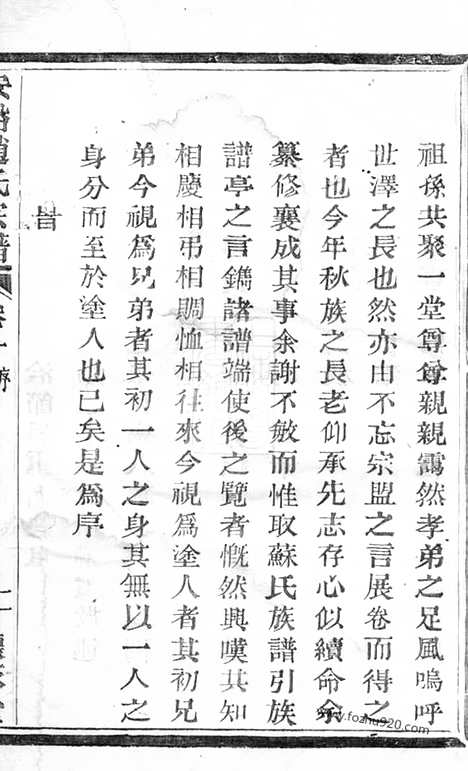 祖孫共聚一堂尊尊親親靄然孝弟之足風嗚呼
世澤之長也然亦由不忘宗盟之言展卷而得之
者也今年秋族之長老仰承先志存心似續命余
纂修襄成其事余謝不敏而惟取蘇氏族譜引族
譜亭之言鐫諸譜端使後之覽者慨然興嘆其知
相慶相弔相賙恤相往來今視爲塗人者其初兄
弟今視爲兄弟者其初一人之身其無以一人之
身分而至於塗人也已矣是爲序
旹
趙氏宗譜
www.fozhu920.com